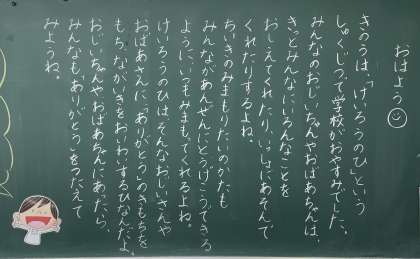 おはよう
きのうは、「けいろうのひ」という
しゅくじつで学校がおやすみでした。
みんなのおじいちゃんやおばあちゃんは、
きっとみんなにいろんなことを
おしえてくれたり、いっしょにあそんで
くれたりするよね。
ちいきのみまもりたいのかたも
みんながあんぜんにとうげこうできる
ようにいつもみまもってくれるよね。
けいろうのひは、そんなおじいさんや
おばあさんに、「ありがとう」のきもちを
もち、ながいきをおいわいするひなんだよ。
おじいちゃんやおばあちゃんにあったら、
みんなもありがとうをつたえて
みようね。